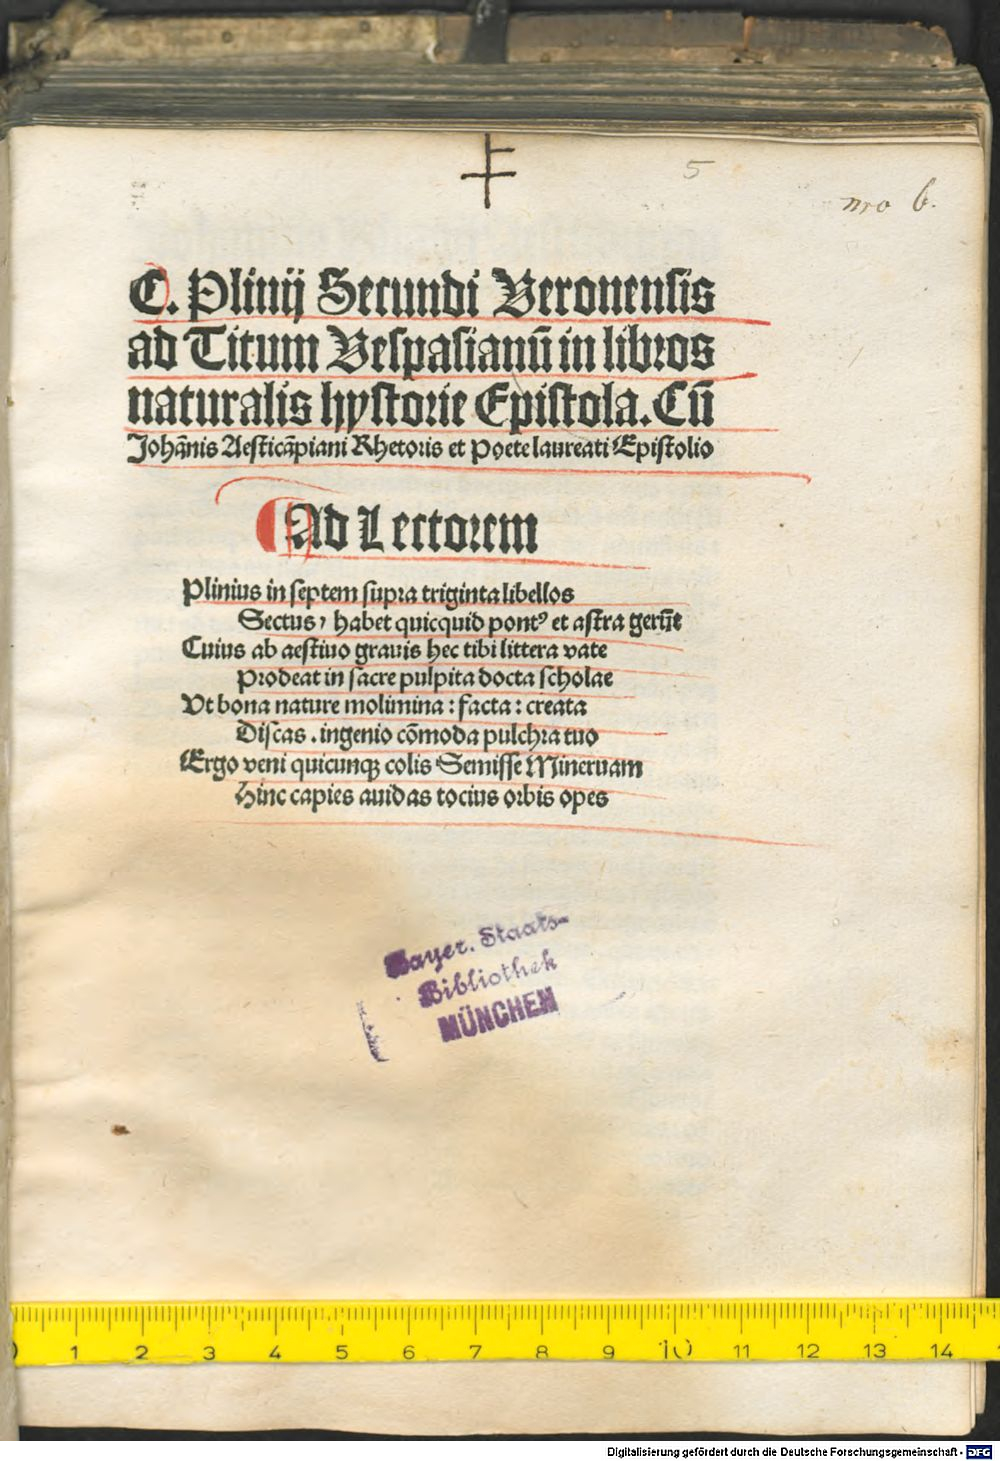 5
nro 6.
C. Plinij Secundi Veronensis
ad Titum Vespasianū in libros
naturalis hystorie Epistola. Cū
Johānis Aesticāpiani Rhetoris et Poete laureati Epistolio
Ad Lectorem
Plinius in septem supra triginta libellos
Sectus, habet quicquid pontꝰ et astra gerūt
Cuius ab aestiuo grauis hec tibi littera vate
Prodeat in sacre pulpita docta scholae
Vt bona nature molimina : facta : creata
Discas . ingenio cōmoda pulchra tuo
Ergo veni quicunqꝫ colis Semisse Mineruam
Hinc capies auidas tocius orbis opes
Bayer. Staats-
Bibliothek
MÜNCHEN
1 2 3 4 5 6 7 8 9 10 11 12 13 14
Digitalisierung gefördert durch die Deutsche Forschungsgemeinschaft - DFG